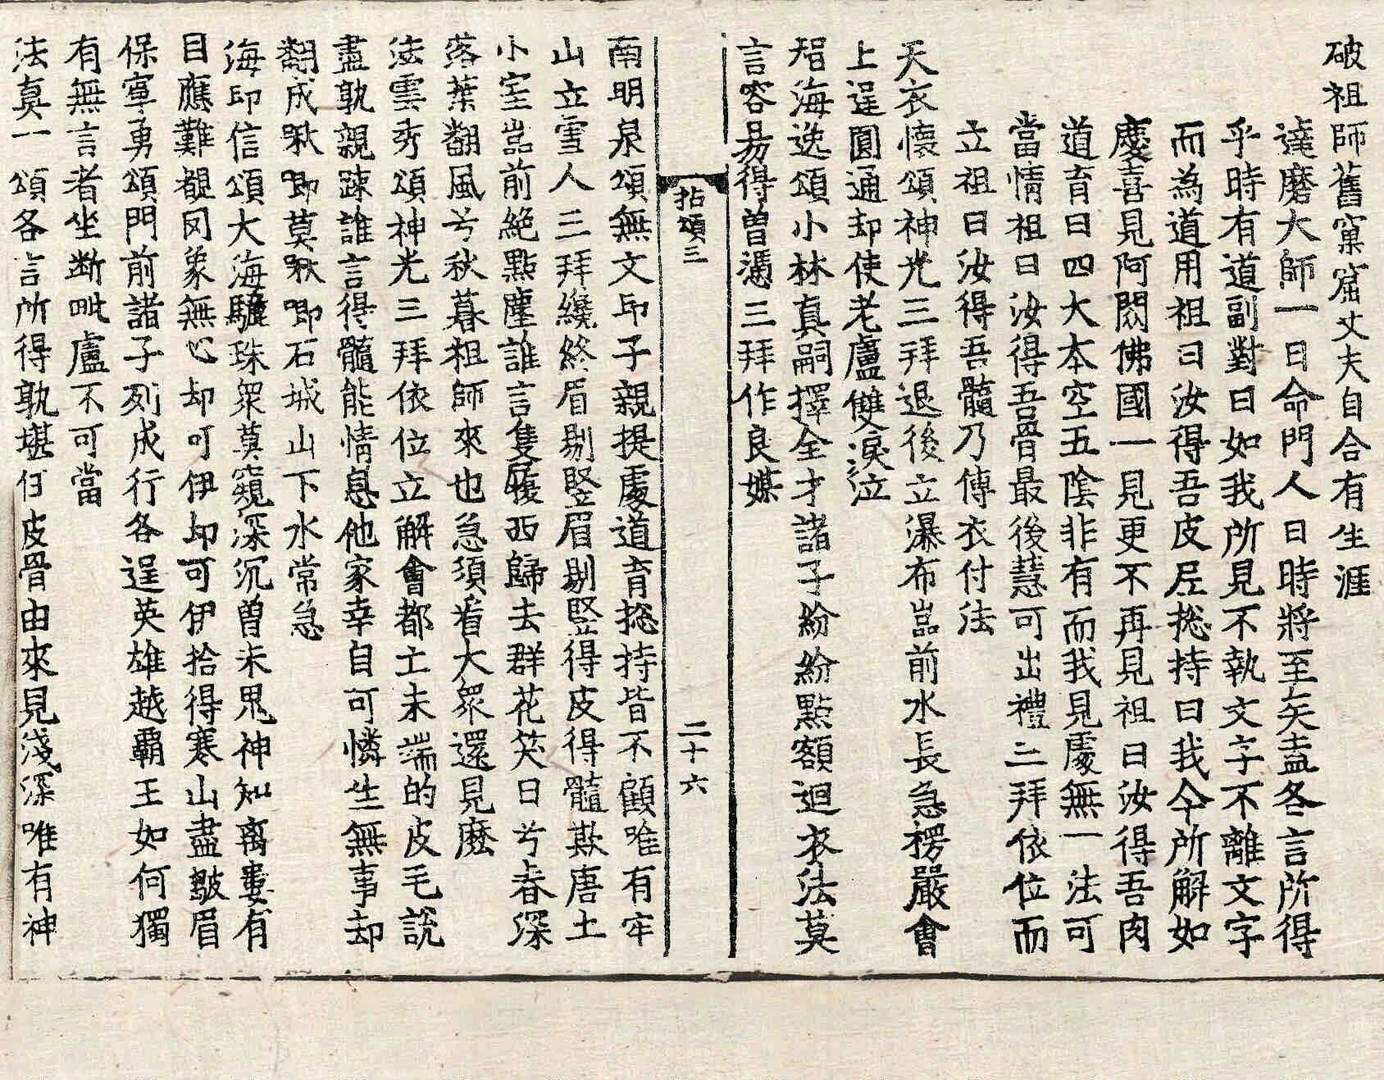 破祖師舊窠窟丈夫自合有生涯
達磨大師一日命門人曰時將至矣盍各言所得
乎時有道副對曰如我所見不執文字不離文字
而為道用祖曰汝得吾皮尼揔持曰我今所解如
慶喜見阿閦佛國一見更不再見祖曰汝得吾肉
道育曰四大本空五陰非有而我見處無一法可
當情祖曰汝得吾骨最後慧可出禮三拜依位而
立祖曰汝得吾髓乃傳衣付法
天衣懷頌神光三拜退後立瀑布嵓前水長急楞嚴會
上逞圓通却使老盧雙淚泣
智海逸頌小林真嗣擇全才諸子紛紛點額迴衣法莫
言容易得曽憑三拜作良媒
拈頌三
二十六
南明泉頌無文印子親提處道育揔持皆不顧唯有牢
山立雪人三拜纔終眉剔竪眉剔竪得皮得髓欺唐土
小室嵓前絶點塵誰言隻履西歸去群花笑日兮春深
落葉翻風兮秋暮祖師來也急湏看大衆還見麽
法雲秀頌神光三拜依位立解會都亡未端的皮毛說
盡孰親踈誰言得髓能情息他家幸自可憐生無事却
翻成啾喞莫啾喞石城山下水常急
海印信頌大海驪珠衆莫窺深沉曽未鬼神知离婁有
目應難覩罔象無心却可伊却可伊拾得寒山盡皺眉
保寧勇頌門前諸子列成行各逞英雄越覇王如何獨
有無言者坐断毗盧不可當
法真一頌各言所得孰堪任皮骨由來見淺深唯有神